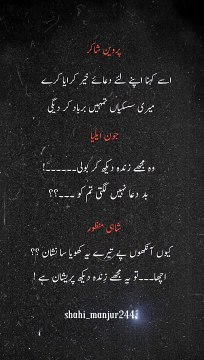 پروین شاکر
اسے کہنا اپنے لئے دعائے خیر کرایا کرے
میری سسکیاں تمہیں برباد کر دیگی
جون ایلیا
وہ مجھے زندہ دیکھ کر بولی------!
بد دعا نہیں لگتی تم کو ---؟؟
شاہی منظور
کیوں آنکھوں پے تیرے یہ کھویا سا نشان ؟؟
اچھا---تو یہ مجھے زندہ دیکھ پریشان ہے !
shahi_manjur244